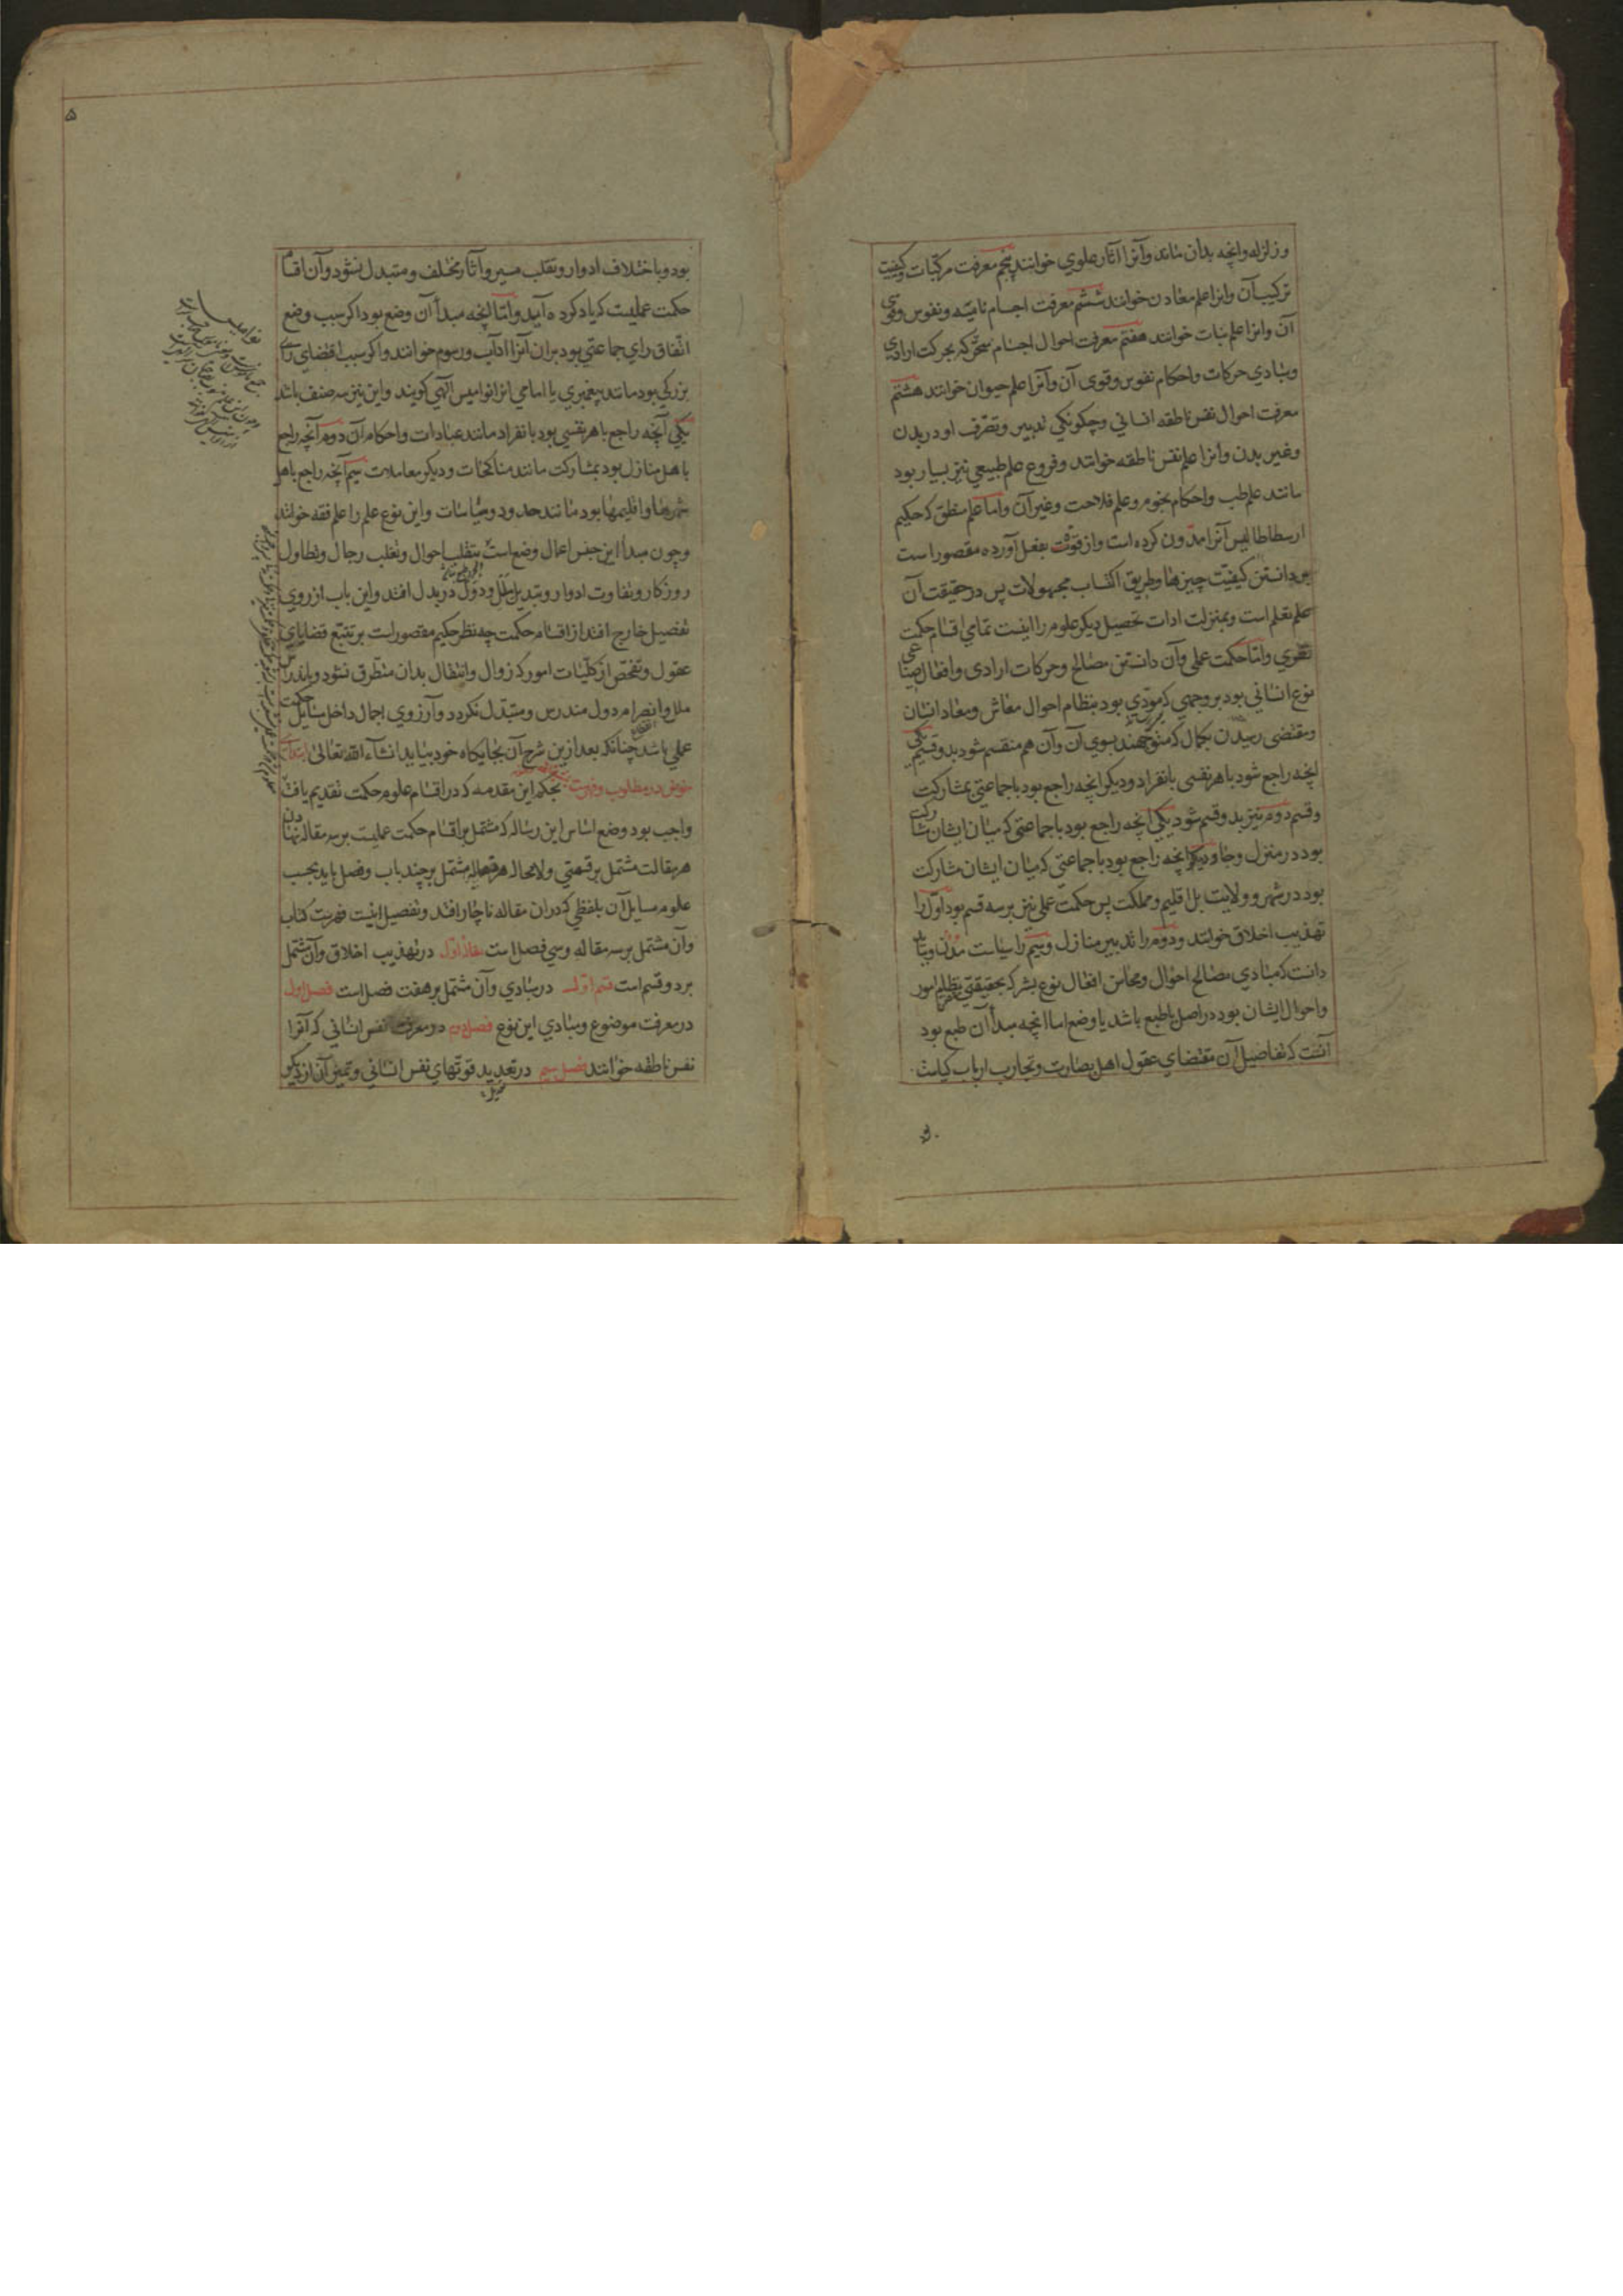 وزلزله وانچه بدان ماند وآنرا آثار علوي خوانند پنجم معرفت مركّبات وكيفيت
تركيب آن وانرا علم معادن خوانند ششم معرفت اجسام ناميه ونفوس وقوي
آن وانرا علم نبات خوانند هفتم معرفت احوال اجسام متحركه بحركت ارادي
ومبادي حركات واحكام نفوس وقوي آن وآنرا علم حيوان خوانند هشتم
معرفت احوال نفس ناطقه انساني وچكونكي تدبير وتصرّف او در بدن
وغير بدن وانرا علم نفس ناطقه خوانند وفروع علم طبيعي نيز بسيار بود
مانند علم طب واحكام نجوم وعلم فلاحت وغير آن واما علم منطق كه حكيم
ارسطاطاليس آنرا مدّون كرده است واز قوّت بفعل آورده مقصور است
بر دانستن كيفيّت چيزها وطريق اكتساب مجهولات پس در حقيقت آن
علم تعلم است وبمنزلت ادات تحصيل ديكر علوم را اينست تمامي اقسام حكمت
نظري وامّا حكمت عملي وآن دانستن مصالح وحركات ارادى وافعال صناعي
نوع انساني بود بر وجهي كه مودّي بود بنظام احوال معاش ومعاد ايشان
ومقتضى رسيدن بكمال كه متوجّهند بسوي آن وآن هم منقسم شود بدو قسم يكي
انچه راجع شود با هر نفسى بانفراد وديكر انچه راجع بود با جماعتي بمشاركت
وقسم دوم نيز بدو قسم شود يكي انچه راجع بود با جماعتى كه ميان ايشان مشاركت
بود در منزل وخانه وديكر انچه راجع بود با جماعتي كه ميان ايشان مشاركت
بود در شهر وولايت بل اقليم ومملكت پس حكمت عملي نيز بر سه قسم بود اوّل را
تهذيب اخلاق خوانند ودوم را تدبير منازل وسيم را سياست مدُن وببايد
دانست كه مبادي مصالح احوال ومحاسن افعال نوع بشر كه بحقيقتي نظام امور
واحوال ايشان بود در اصل يا طبع باشد يا وضع اما انچه مبدأ آن طبع بود
آنست كه تفاصيل آن مقتضاي عقول اهل بصارت وتجارب ارباب كياست
بود
۵
بود وباختلاف ادوار وتقلب سير وآثار مختلف ومتبدل نشود وآن اقسام
حكمت عمليست كه ياد كرده آيد وامّا انچه مبدأ آن وضع بود اكر سبب وضع
اتّفاق راي جماعتي بود بر ان آنرا آداب ورسوم خوانند واكر سبب اقتضاي راي
بزركي بود مانند پيغمبري يا امامي انرا نواميس الهي كويند واين نيز سه صنف باشد
يكي آنچه راجع با هر نفسي بود بانفراد مانند عبادات واحكام آن دوم آنچه راجع
با هل منازل بود بمشاركت مانند مناكحات وديكر معاملات سيم آنچه راجع با هل
شهرها واقليمها بود مانند حدود وسياسات واين نوع علم را علم فقه خوانند
وچون مبدأ اين جنس اعمال وضع است بتقلب احوال وتغلب رجال وتطاول
روزكار وتفاوت ادوار وتبديل ملل ودول در بدل افتد واين باب از روي
تفصيل خارج افتد از اقسام حكمت چه نظر حكيم مقصور است بر تتبع قضاياي
عقول وتفحّص از كلّيّات امور كه زوال وانتقال بدان متطرق نشود وباندراس
ملل وانصرام دول مندرس ومتبدّل نكردد وآز روي اجمال داخل مسايل حكمت
عملي باشد چنانكه بعد ازين شرح آن بجايكاه خود بيايد انشآء الله تعالى ابتداء
خوض در مطلوب وفهرست بحكم اين مقدمه كه در اقسام علوم حكمت تقديم يافت
واجب بود وضع اساس اين رساله كه مشتمل بر اقسام حكمت عمليست بر سه مقاله نهادن
هر مقالت مشتمل بر قسمتي ولا محاله هر مقاله مشتمل بر چند باب وفصل بايد بحسب
علوم مسايل آن بلفظي كه در ان مقاله ناچار افتد وتفصيل اينست فهرست كتاب
وآن مشتمل بر سه مقاله وسي فصل است مقاله اوّل در تهذيب اخلاق وآن مشتمل
بر دو قسم است قسم اوّل در مبادي وآن مشتمل بر هفت فصل است فصل اول
در معرفت موضوع ومبادي اين نوع فصل دوم در معرفت نفس انساني كه آنرا
نفس ناطقه خوانند فصل سيم در تعديد قوتهاي نفس انساني وتميز آن از ديكر